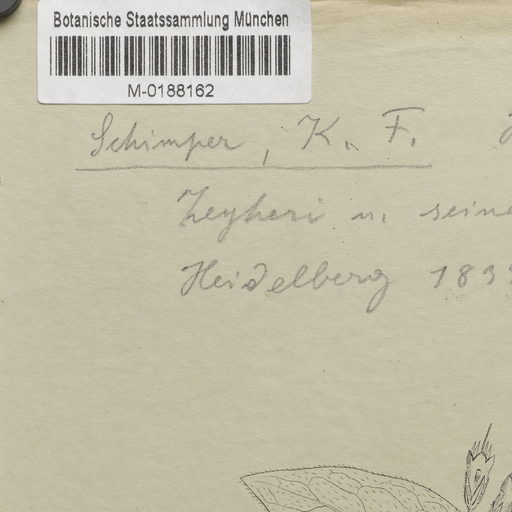 Botanische Staatssammlung München
M-0188162
Schimper, K. F.
Zeyheri u. seine
Heidelberg 183